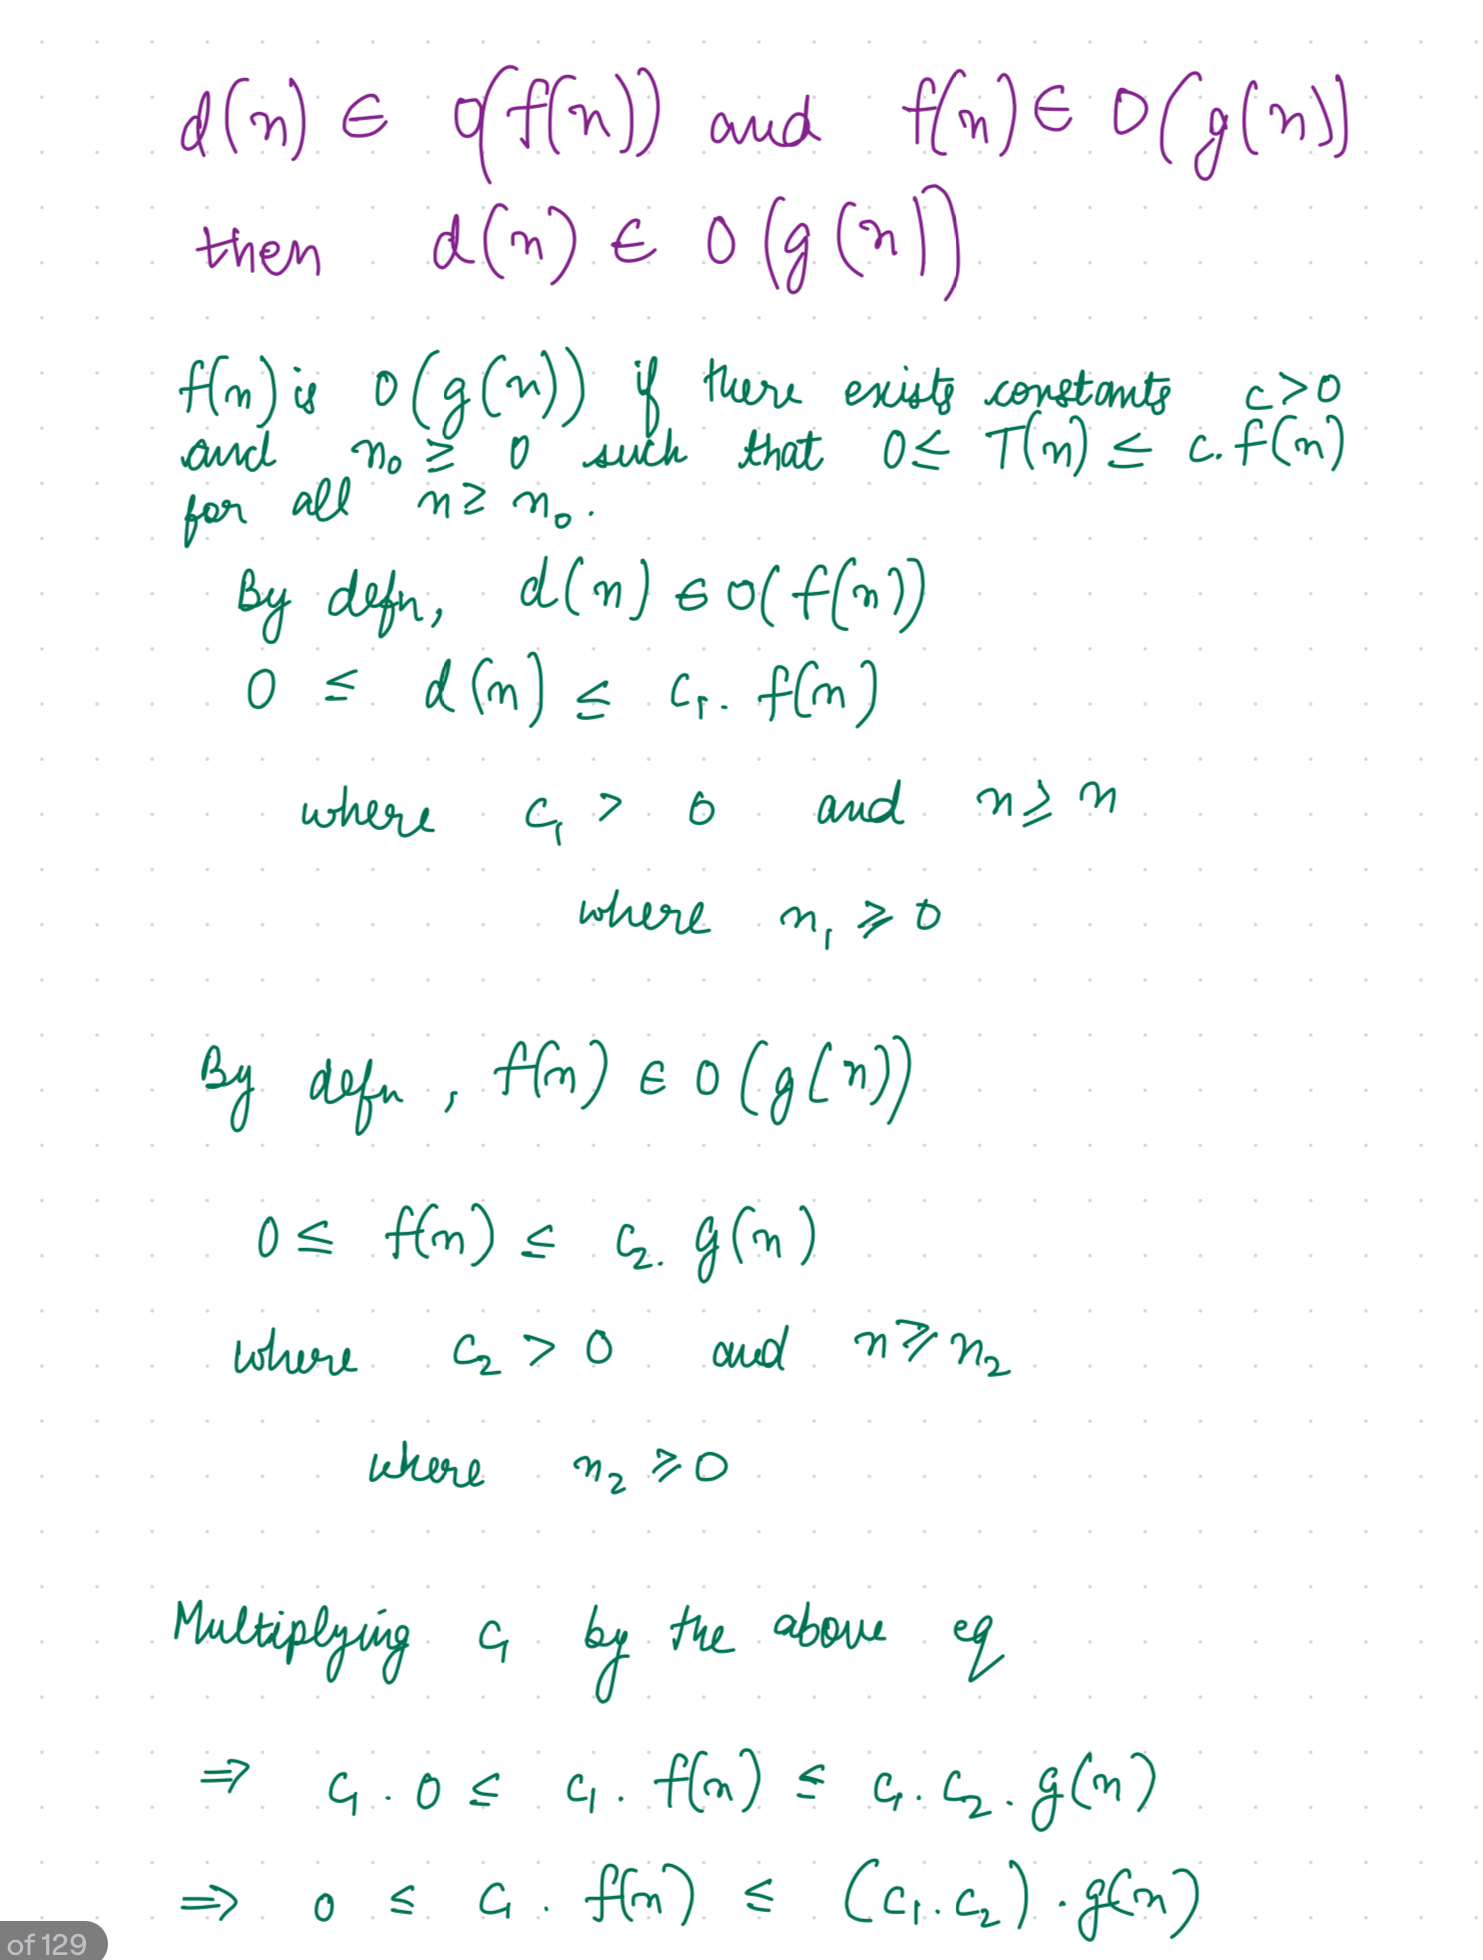 d(n) ∈ O(f(n)) and f(n) ∈ O(g(n))
then d(n) ∈ O(g(n))
f(n) is O(g(n)) if there exists constants c>0
and n₀ ≥ 0 such that 0 ≤ T(n) ≤ c. f(n)
for all n ≥ n₀.
By defn, d(n) ∈ O(f(n))
0 ≤ d(n) ≤ c₁. f(n)
where c₁ > 0 and n ≥ n
where n₁ ≥ 0
By defn, f(n) ∈ O(g(n))
0 ≤ f(n) ≤ c₂. g(n)
where c₂ > 0 and n ≥ n₂
where n₂ ≥ 0
Multiplying c₁ by the above eq
⇒ c₁. 0 ≤ c₁. f(n) ≤ c₁. c₂. g(n)
⇒ 0 ≤ c₁. f(n) ≤ (c₁. c₂). g(n)
of 129